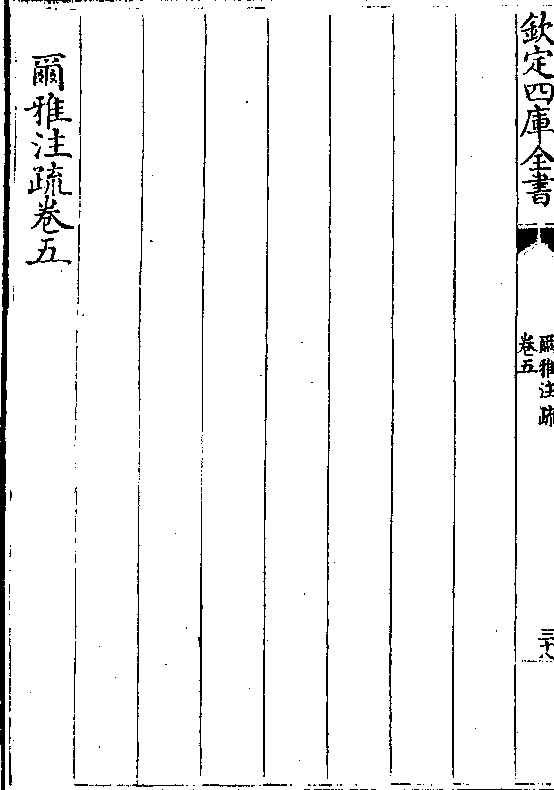 欽定四庫全書
爾雅注疏
卷五
三十八
爾雅注疏卷五